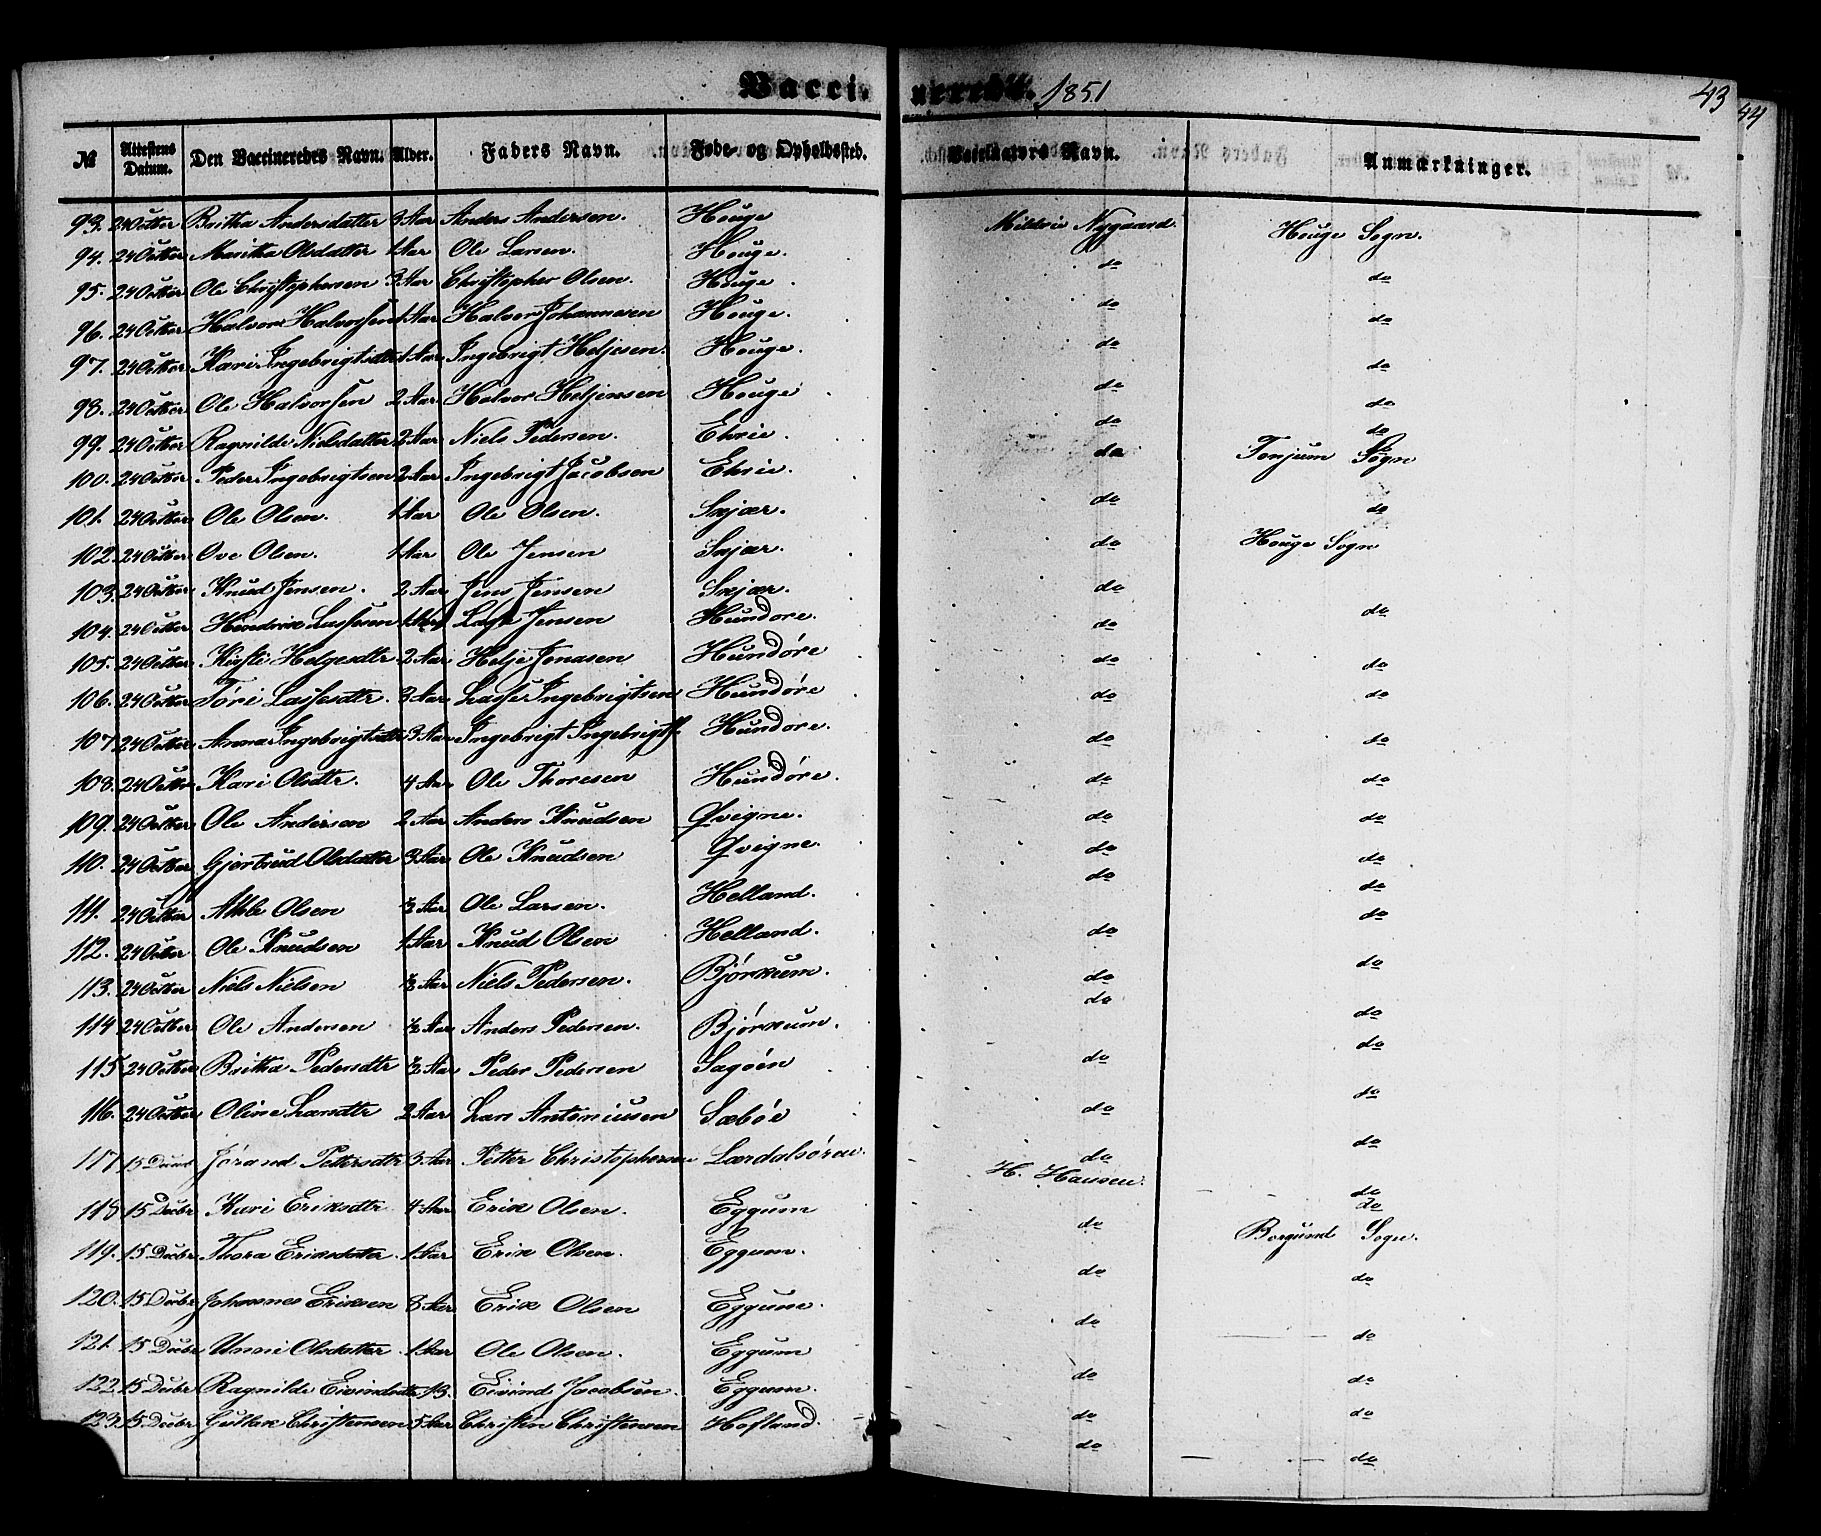 Vaccinerede. 1851 43
44
№ Attestens Datum. Den Vaccineredes Navn. Alder. Faders Navn. Føde- og Opholdssted. Vaccinators Navn. Anmærkninger.
93. 24 Octbr Britha Andersdatter 3 Aar Anders Andersen. Houge Nygaard. Houge Sogn.
94. 24 Octbr Maritha Olsdatter 1 Aar Ole Larsen. Houge. do do
95. 24 Octbr Ole Christophersen 3 Aar Christopher Olsen. Houge. do do
96. 24 Octbr Halvor Halvorsen 1 Aar Halvor Johannesen Houge. do do
97. 24 Octbr Kari Ingebrigtsdtr 1 Aar Ingebrigt Heljesen. Houge. do do
98. 24 Octbr Ole Halvorsen 2 Aar Halvor Heljesen Houge do do
99. 24 Octbr Ragnilde Nielsdatter 2 Aar Niels Pedersen. Ehrie. do Tonjum Sogn
100. 24 Octbr Peder Ingebrigtsen 2 Aar Ingebrigt Jacobsen Ehrie. do do
101. 24 Octbr Ole Olsen. 1 Aar Ole Olsen. Skjær. do Houge Sogn
102. 24 Octbr Ove Olsen. 1 Aar Ole Jensen Skjær. do
103. 24 Octbr Knud Jensen. 2 Aar Jens Jensen Skjær. do do
104. 24 Octbr Hendrik Lassesen 1 Aar Lasse Jensen Hundøre. do do
105. 24 Octbr Kiste Helgesdtr 2 Aar Helje Jonasen Hundøre do do
106. 24 Octbr Tøri Lassesdtr. 3 Aar Lasse Ingebrigtsen Hundøre do do
107 24 Octbr Anna Ingebrigtsdtr 3 Aar Ingebrigt Ingebrigts. Hundøre. do do
108. 24 Octbr Kari Olsdtr. 4 Aar Ole Thoresen Hundøre. do do
109. 24 Octbr Ole Andersen 2 Aar Anders Knudsen Qvigne. do do
110. 24 Octbr Gjertrud Olsdatter 3 Aar Ole Knudsen Qvigne. do do
111. 24 Octbr Atle Olsen 3 Aar Ole Larsen. Helland. do do
112. 24 Octbr Ole Knudsen 1 Aar Knud Olsen Helland. do do
113. 24 Octbr Niels Nielsen Aar Niels Pedersen. Bjørkum. do do
114 24 Octbr Ole Andersen Aar Anders Pedersen. Bjørkum. do do
115 24 Octbr Britha Pedersdtr Aar Peder Pedersen Sagøen do do
116. 24 Octbr Oline Larsdtr 2 Aar Lars Antoniussen Sæbøe do do
117 15 Decbr Jørand Pettersdtr 3 Aar Petter Christophersen Lærdalsøren. H. Hansen. do
118 15 Decbr Kari Eriksdtr 4 Aar Erik Olsen. Eggum do Borgund Sogn.
119. 15 Decbr Thora Eriksdatter. 1 Aar Erik Olsen. Eggum. do do
120. 15 Decbr Johannes Eriksen 8 Aar Erik Olsen Eggum. do do
121. 15 Decbr Unni Olsdatter 1 Aar Ole Olsen. Eggum do do
122 15 Decbr Ragnilde Eivindsdtr 13. Eivind Jacobsen. Eggum. do do
123. 15 Decbr Gullak Christensen 5 Aar Christen Christensen Hofland. do do